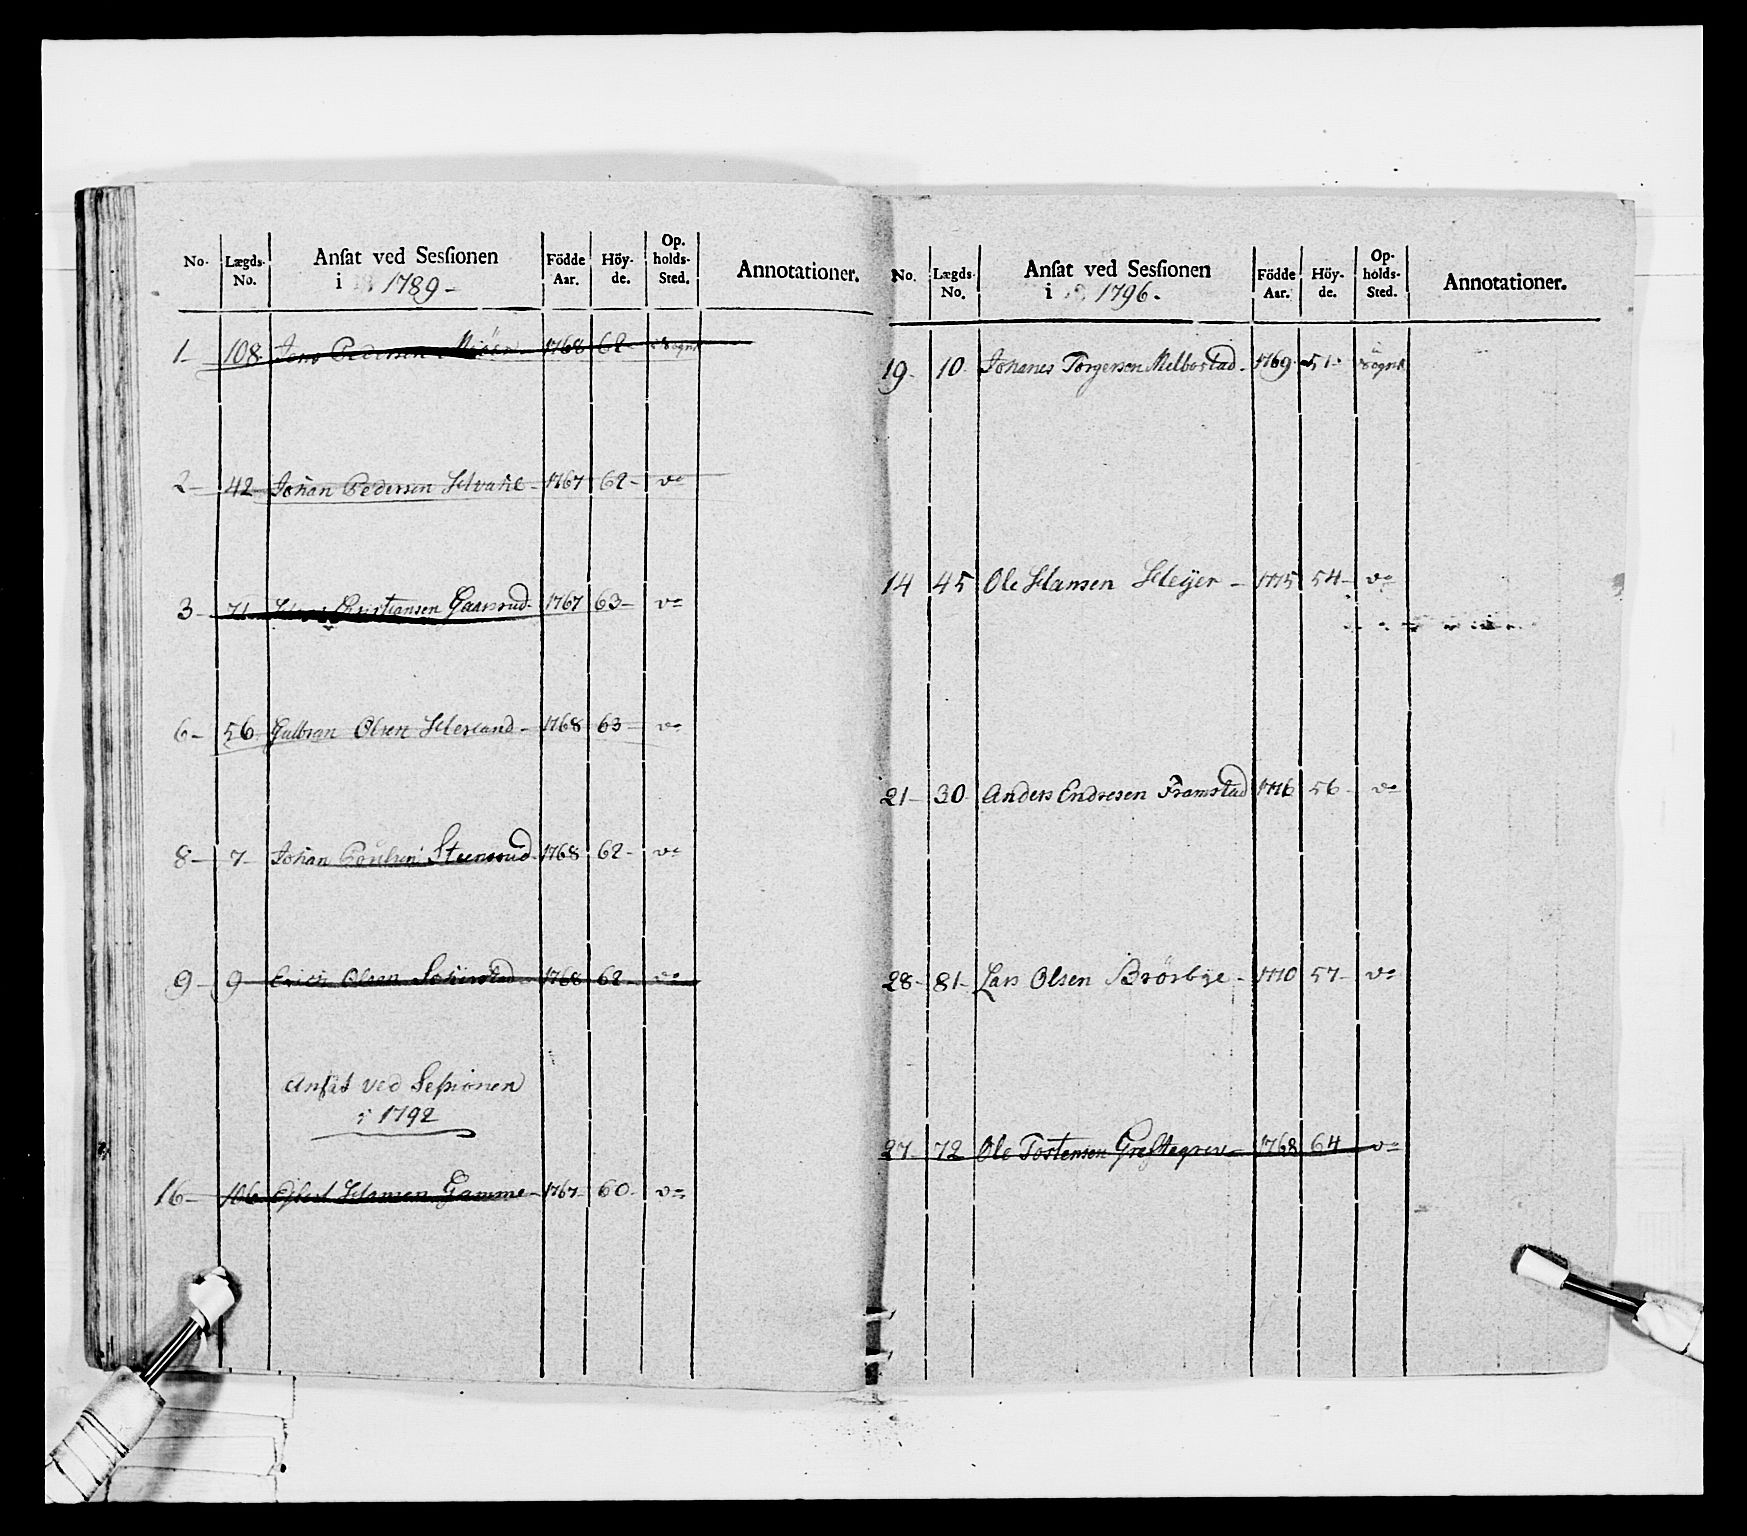 No. Lægds- No. Anſat ved Sesſionen i 1789 - Födde Aar. Höy- de. Op- holds- Sted. Annotationer.
1- 108 Jens Pedersen 1768 62- i Sognt
2- 42 Johan Pedersen Hvahl - 1767 62- do
3- 71 Christiansen Gaarsrud - 1767 63- do
6- 56 Gulbran Olsen - 1768 63- do
8- 7- Johan Poulsen Steensrud - 1768 62- do
9- 9 Erich Olsen 1768 62- do
Ansat ved Seßionen
i 1792
16- 106 Hansen Gamme - 1767- 60- do
No. Lægds- No. Anſat ved Sesſionen i 1796. Födde Aar. Höy- de. Op- holds- Sted. Annotationer.
19- 10 Johanes Torgersen Melbostad - 1769 51- i Sognt
14 45 Ole Hansen Heyer - 1775 54- do
21- 30 Anders Endresen Framstad 1776 56- do
28- 81- Lars Olsen Brörbye - 1770 57- do
27- 72 Ole Tostensen - 1768 64 do